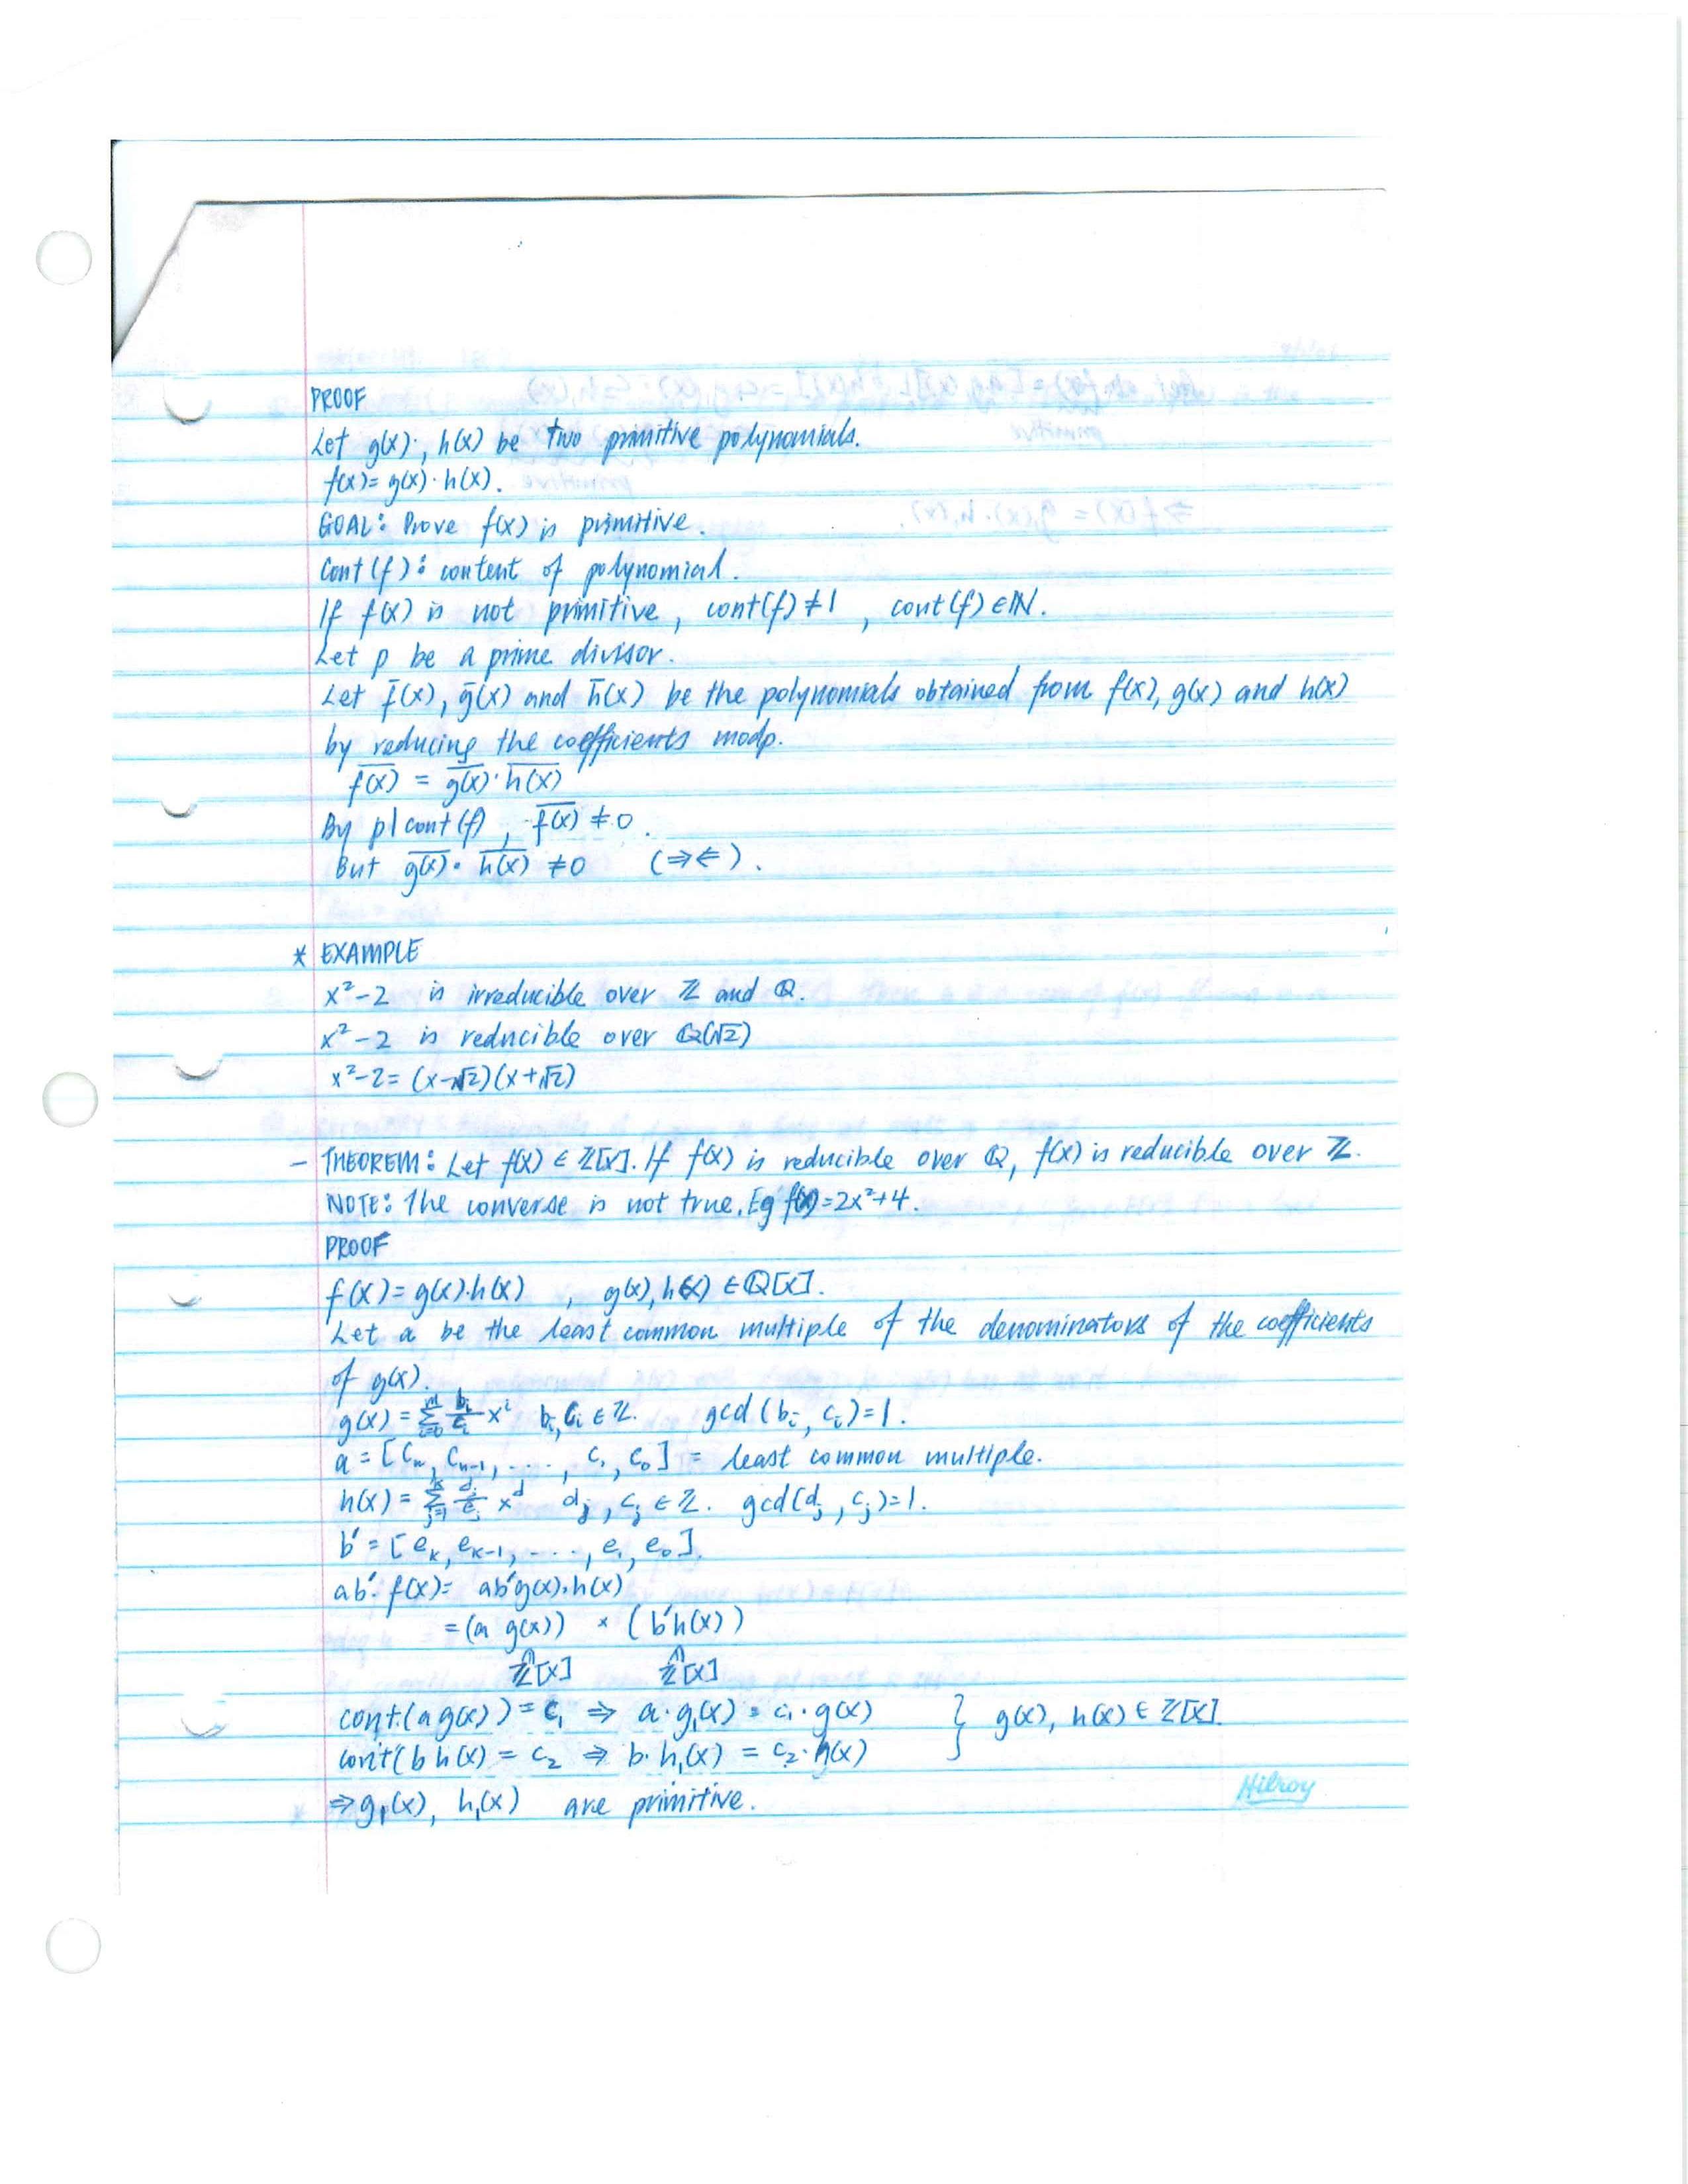 PROOF
Let g(x), h(x) be two primitive polynomials.
f(x) = g(x)·h(x).
GOAL: Prove f(x) is primitive.
Cont(f): content of polynomial.
If f(x) is not primitive, cont(f) ≠ 1, cont(f) ∈ ℕ.
Let p be a prime divisor.
Let f̄(x), ḡ(x) and h̄(x) be the polynomials obtained from f(x), g(x) and h(x)
by reducing the coefficients modp.
\overline{f(x)} = \overline{g(x)}·\overline{h(x)}
By p|cont(f), \overline{f(x)} ≠ 0.
But \overline{g(x)}·\overline{h(x)} ≠ 0 (⇒⇐).
* EXAMPLE
x²-2 is irreducible over ℤ and ℚ.
x²-2 is reducible over ℚ(√2)
x²-2 = (x-√2)(x+√2)
- THEOREM: Let f(x) ∈ ℤ[x]. If f(x) is reducible over ℚ, f(x) is reducible over ℤ.
NOTE: The converse is not true. Eg f(x) = 2x²+4.
PROOF
f(x) = g(x)·h(x) , g(x), h(x) ∈ ℚ[x].
Let a be the least common multiple of the denominators of the coefficients
of g(x).
g(x) = \sum_{i=0}^{n} \frac{b_i}{c_i} x^i b_i, c_i ∈ ℤ. gcd(b_i, c_i)=1.
a = [c_n, c_{n-1}, ..., c_1, c_0] = least common multiple.
h(x) = \sum_{j=1}^{k} \frac{d_j}{e_j} x^d d_j, c_j ∈ ℤ. gcd(d_j, c_j)=1.
b' = [e_k, e_{k-1}, ..., e_1, e_0].
ab'·f(x) = ab'g(x)·h(x)
= (a g(x)) × (b'h(x))
ℤ[x] ℤ[x]
cont(a g(x)) = c₁ ⇒ a·g₁(x) = c₁·g(x) } g(x), h(x) ∈ ℤ[x].
cont(b h(x) = c₂ ⇒ b·h₁(x) = c₂·h(x)
⇒ g₁(x), h₁(x) are primitive.
Hilroy